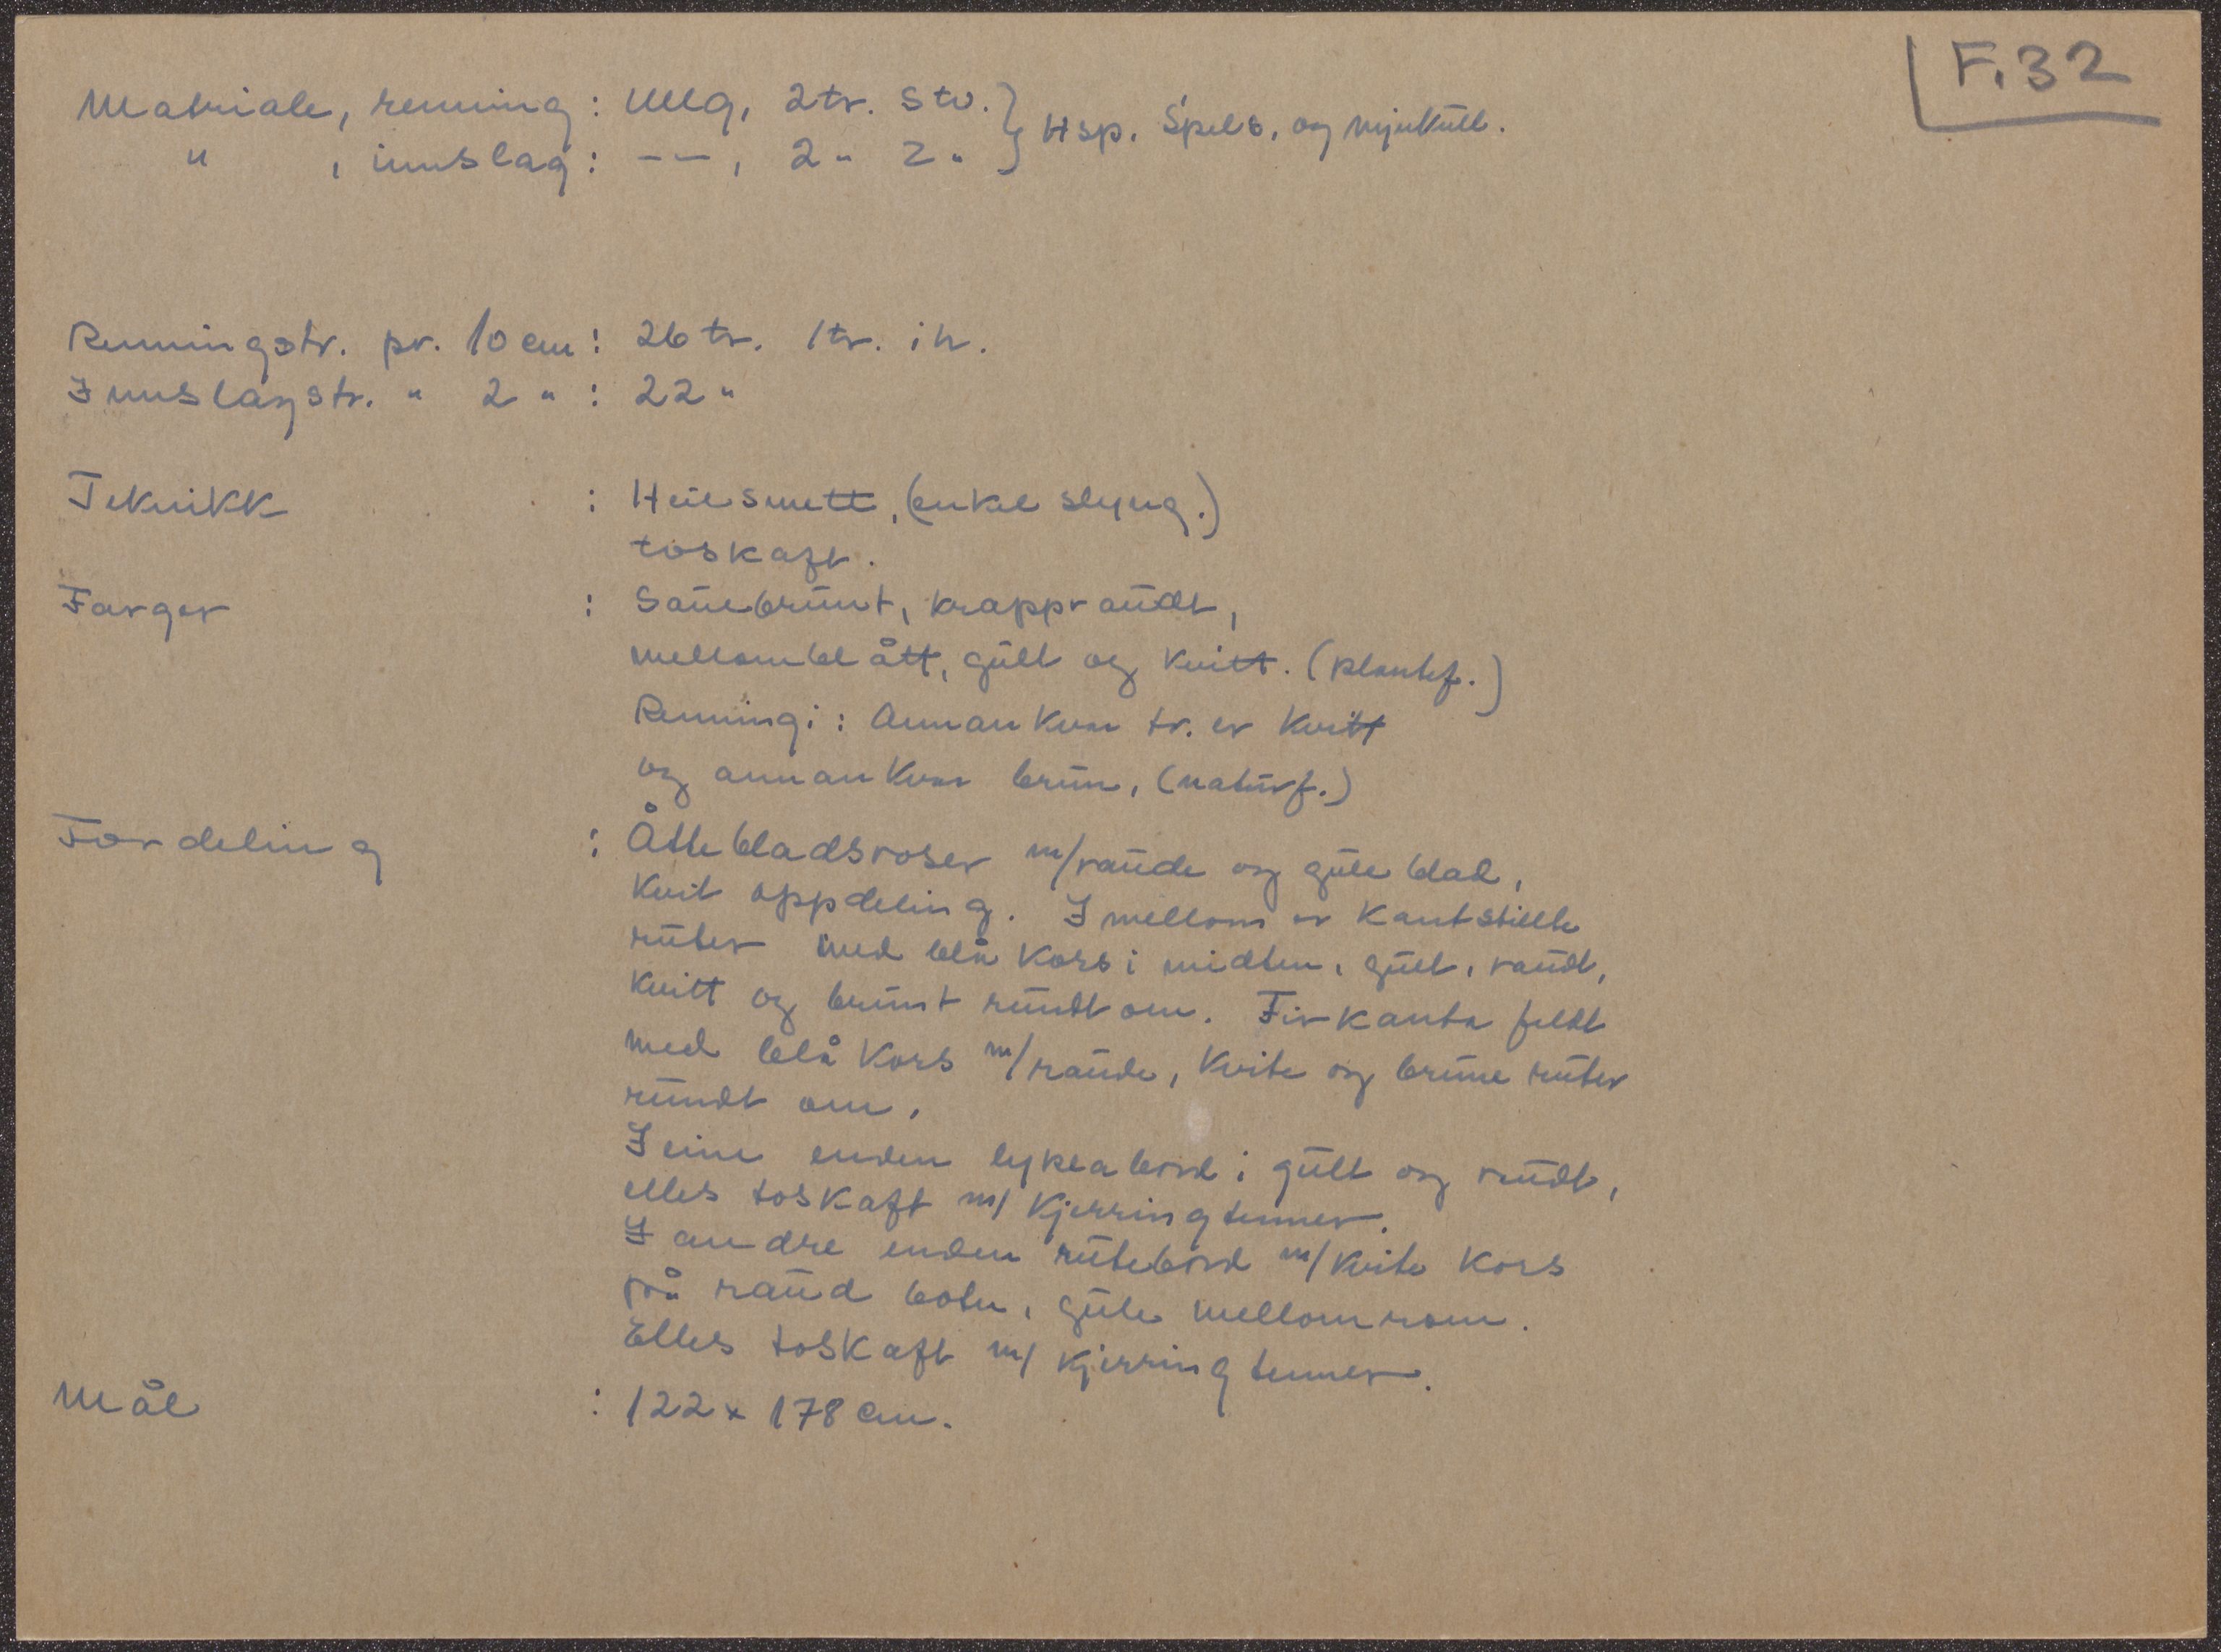 F.32
Materiale, renning: Ullg, 2tr. S tv. } Hsp. Spels. og mjukull.
" , innslag: - - , 2 " Z "
Renningstr. pr. 10 cm: 26 tr. 1 tr. i h.
Innslagstr. " 2 " : 22 "
Teknikk : Heilsmett, (enkel slyng.)
toskaft.
Farger : Sauebrunt, krappraudt,
mellomblått, gult og kvitt. (plantef.)
Renningi: Annankvar tr. er kvitt
og annankvar brun, (naturf.)
Fordeling : Åttebladsroser m/raude og gule blad,
kvit oppdeling. I mellom er kantstillte
ruter med blå kors i midten, gult, raudt,
kvitt og brunt rundt om. Firkanta feltt
med blå kors m/raude, kvite og brune ruter
rundt om.
I eine enden lykkjabord i gult og raudt,
elles toskaft m/ kjerringtenner.
I andre enden rutebord m/kvite kors
på raud botn, gule mellomrom.
Elles toskaft m/ kjerringtenner.
Mål : 122 x 178 cm.